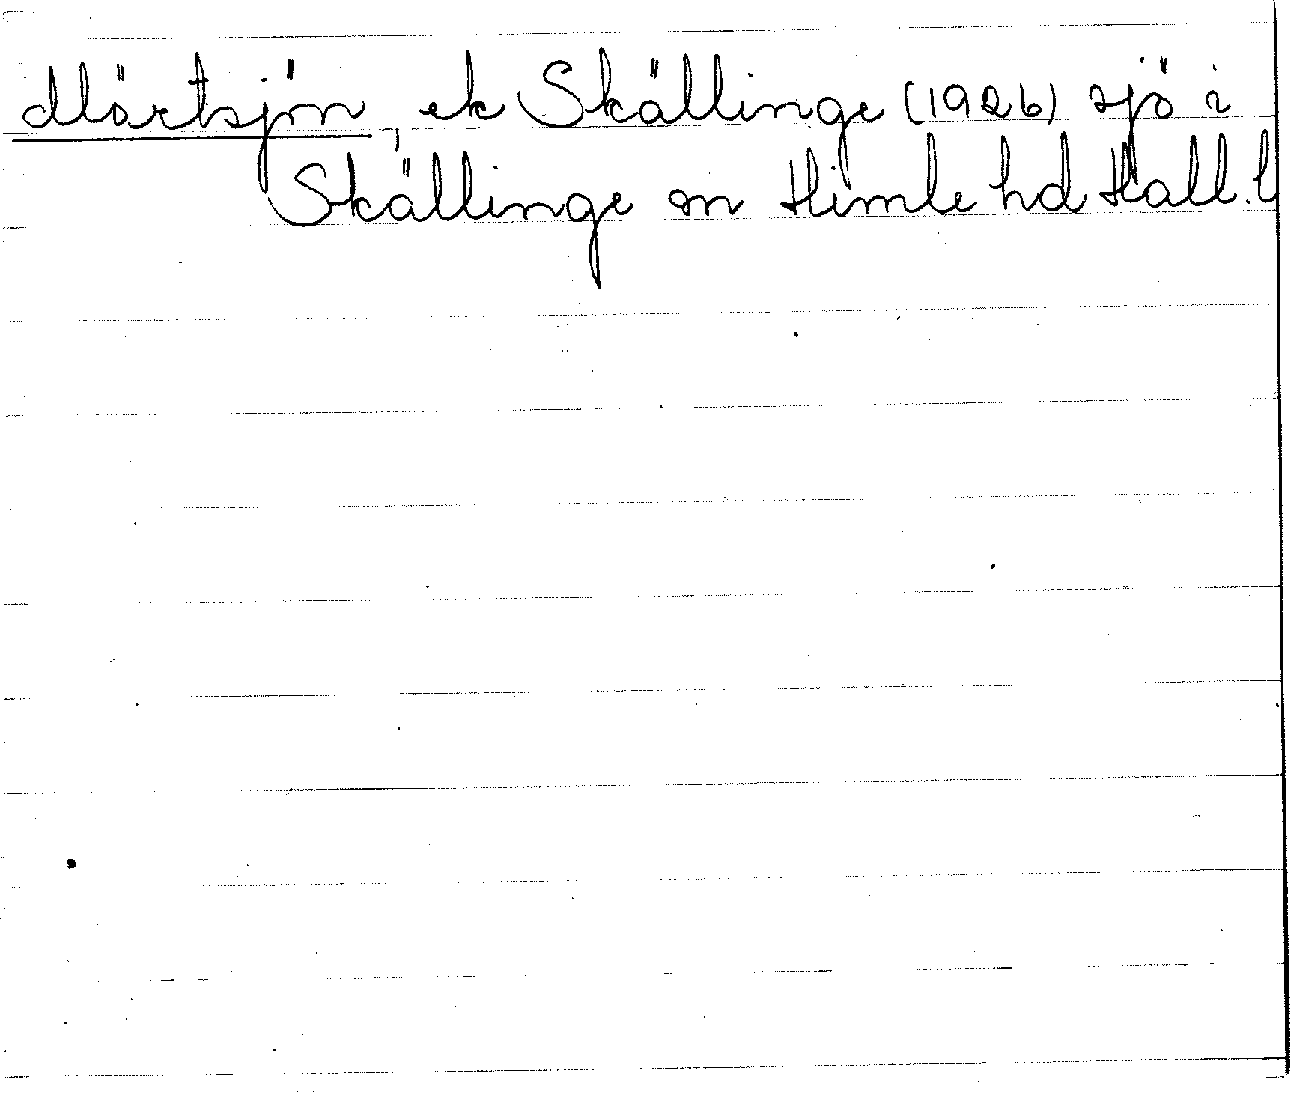 Mörtsjön, ek Skällinge (1926) sjö i
Skällinge sn Himle hd Hall.l